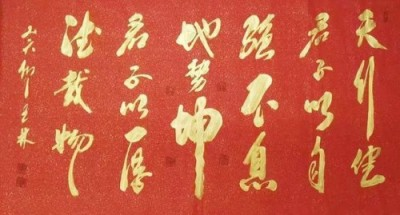 天行健
君子以自
强不息
地势坤
君子以厚
德载物